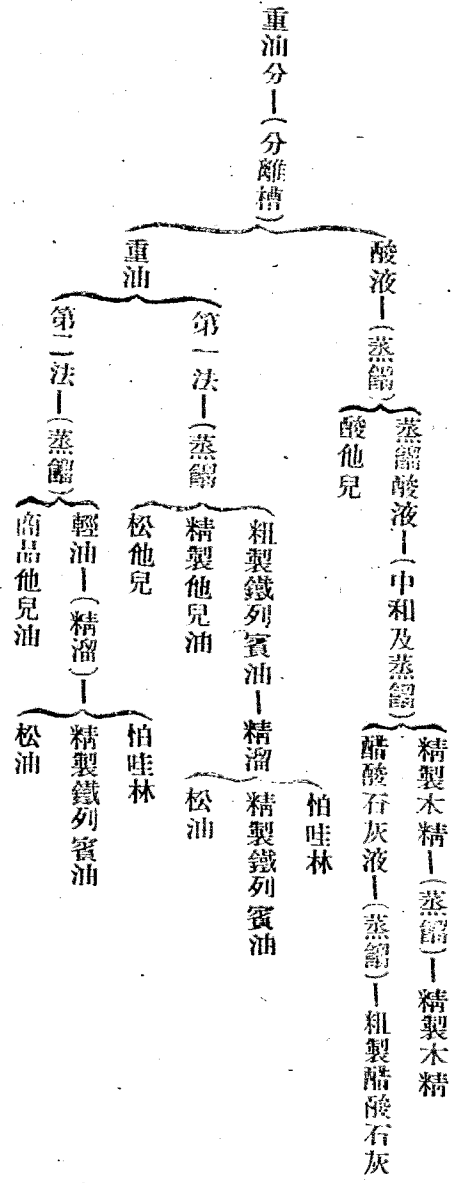 重油分—(分離槽)
酸液—(蒸餾)
蒸餾酸液—(中和及蒸餾)
精製木精—(蒸餾)—精製木精
醋酸石灰液—(蒸餾)—粗製醋酸石灰
酸他兒
重油
第一法—(蒸餾)
粗製鐵列賓油—精溜
怕哇林
精製鐵列賓油
松油
精製他兒油
松他兒
第二法—(蒸餾)
輕油—(精溜)—
怕哇林
精製鐵列賓油
松油
商品他兒油